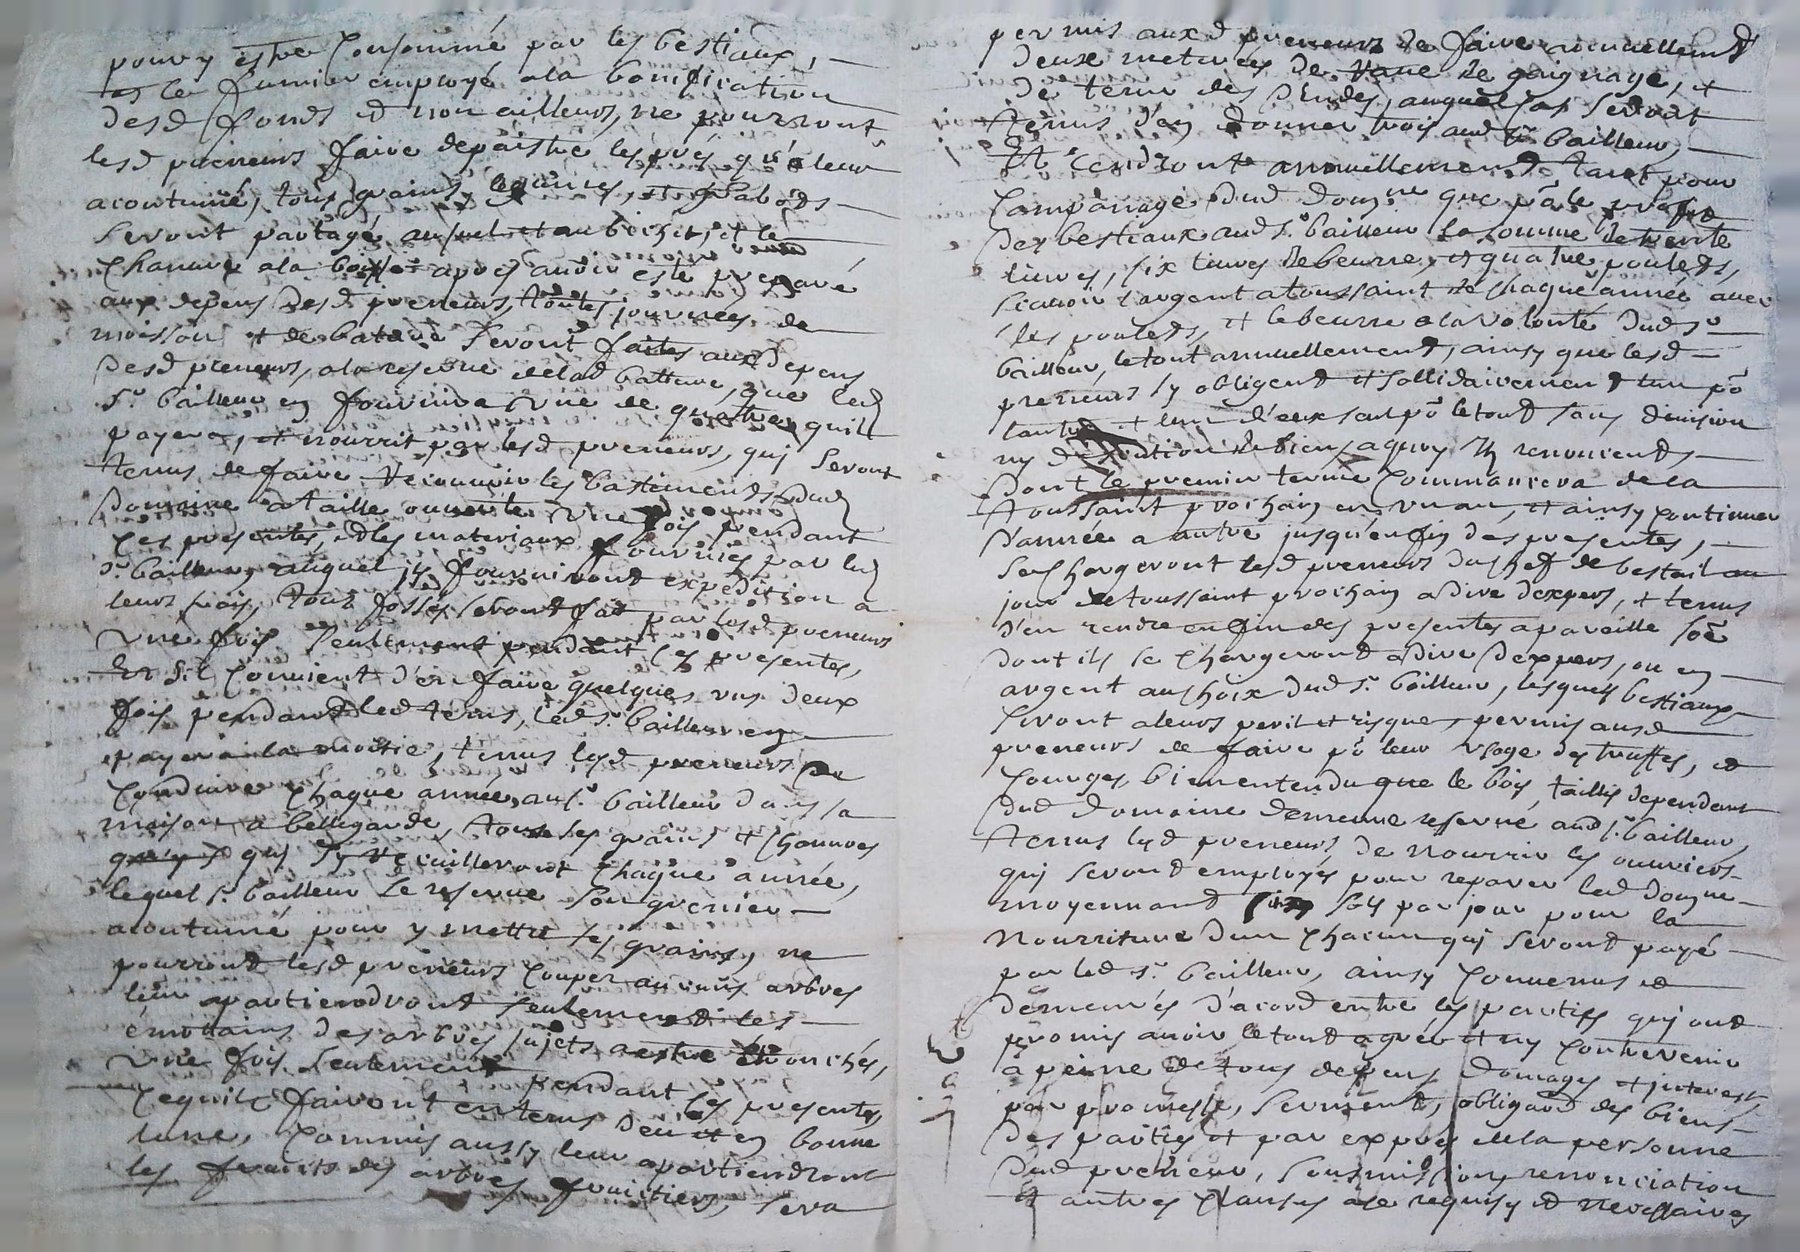 pour y estre Consommé par les bestiaux,
et le fumier employé a la bonification
desd fonds et non ailleurs, ne pourront
lesd preneurs faire depaistre les prés qu'a leur
acoutumé, tous grains, legumes, et
seront partagé, au bichet, et le
Chanvre a la apres avoir esté preparé
aux depens desd preneurs, toutes journées de
moisson et de bature seront faites aux depens
desd preneurs, a la reserve de lad batture, que led
Sr bailleur en fournira une de quatre, quil
payera, et nourrit par lesd preneurs, quj seront
tenus de faire recouvrir les bastiments dud
Domaine a taille ouverte une fois pendant
Ces presentes, et les materiaux fournies par led
Sr bailleur, auquel ils fourniront expedition a
leurs frais, tous fossés seront fait par lesd preneurs
une fois seulement pendant Ces presentes,
Et Sil Convient d'en faire quelques uns deux
fois pendant led tems, led Sr bailleur en
payera la moitie, tenus lesd preneurs de
Conduire Chaque année, au Sr bailleur dans sa
maison a bellegarde, tous les grains et Chanvres
quj s'y recuilleront Chaque année,
lequel Sr bailleur se reserve son grenier
acoutumé pour y mettre ses grains, ne
pourront lesd preneurs Couper aucuns arbres
leur apartiendront seulement les
émotains des arbres sujets a estre émonchés,
une fois seulement pendant Ces presentes,
Ce quils fairont en tems deu et en bonne
lune, Commis aussy leur apartiendront
les fruits des arbres fruitiers, sera
permis auxd preneurs de faire annuellement
deux meteres de rave de gaignage, et
de tenir des Dindes, auquel Cas seront
tenus d'en donner trois aud Sr bailleur,
Et rendront annuellement tant pour
l'ampanage dud Domne que pr le profit
des bestiaux aud Sr bailleur la somme de trente
livres, six livres de beurre, et quatre poulets,
scavoir l'argent a toussaint de Chaque année avec
les poulets, et le beurre a la volonté dud Sr
bailleur, le tout annuellement, ainsy que lesd
preneurs s'y obligent et sollidairement l'un pr
l'autre et l'un d'eux seul pr le tout sans division
ny discution de biens a quoy ils renoncent
Dont le premier terme Commancera de la
toussaint prochain en un an, et ainsy Continuer
d'année a autre jusqu'en fin des presentes,
se Chargeront lesd preneurs du Chef de bestail au
jour de toussaint prochain a dire d'expers, et tenus
d'en rendre en fin des presentes a pareille soe
dont ils se Chargeront a dire d'expers, ou en
argent au Choix dud Sr bailleur, lesquels bestiaux
seront a leurs peril et risque, permis ausd
preneurs de faire pr leur usage des truffes, et
Courges, bien entendu que le bois, taillis dependant
dud domaine demeure reservé aud Sr bailleur,
tenus lesd preneurs de nourrir les ouvriers
quj seront employés pour reparer led Domne
moyennant sols par jour pour la
nourriture d'un Chacun quj seront payé
par led Sr bailleur, ainsy Convenus et
demeurés d'acord entre les parties quj ont
promis avoir le tout agréé et ny Contrevenir
a peine de tous depens, domages et interest,
par promesse, serment, obligaon des biens
des parties et par exprés de la personne
dud preneur, soumissions, renonciation
et autres Clauses a ce requises et necessaires